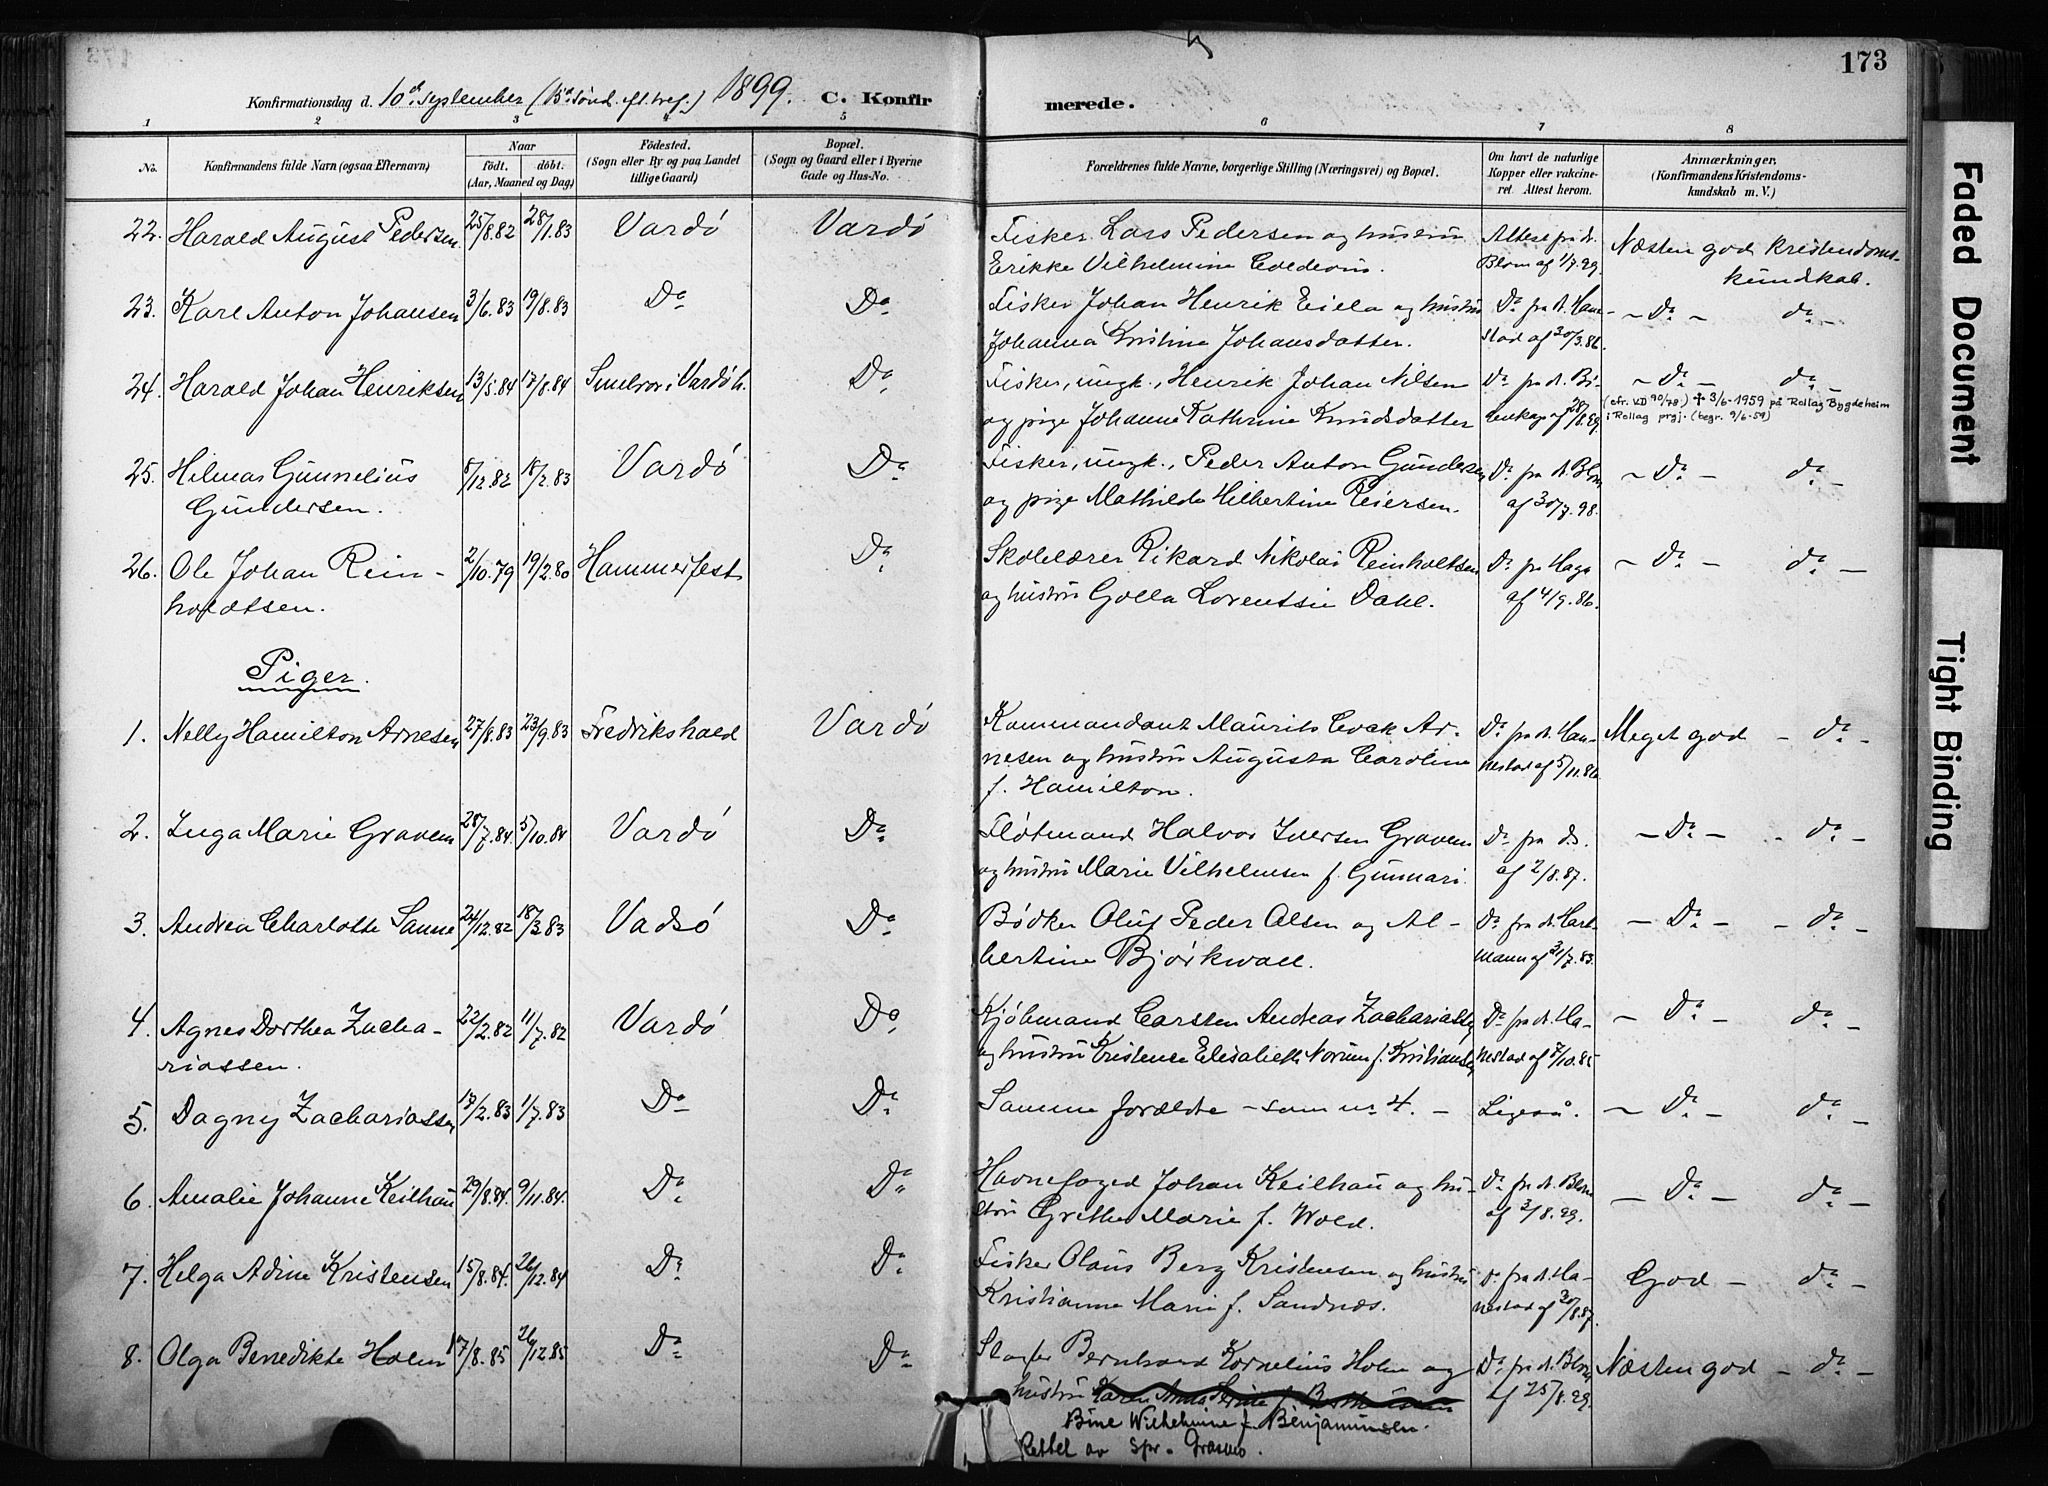 173
Konfirmationsdag d. 10de September (15de Sönd. eft. tref.) 1899. C. Konfirmerede.
1 2 3 4 5 6 7 8
No. Konfirmandens fulde Navn (ogsaa Efternavn) Naar födt. döbt. (Aar, Maaned og Dag) Födested. (Sogn eller By og paa Landet tillige Gaard) Bopæl. (Sogn og Gaard eller i Byerne Gade og Hus-No. Forældrenes fulde Navne, borgerlige Stilling (Næringsvei) og Bopæl. Om havt de naturlige Kopper eller vakcineret. Attest herom. Anmærkninger. (Konfirmandens Kristendomskundskab m. V.)
22. Harald August Pedersen 25/8.82 28/1.83 Vardö Vardö Fisker Lars Pedersen og hustru Attest fra dr. Næsten god kristendoms-
Erikke Vilhelmine Blom af 1/7.99. kundskab.
23. Karl Anton Johansen 3/6.83 19/8.83 Do Do Fisker Johan Henrik Eilla og hustru Do fra dr. Han- - Do - do -
Johanna Kristine Johansdatter. stad af 30/3.86.
24. Harald Johan Henriksen 13/5.84 17/8.84 Smelror i Vardö l. Do Fisker, ungk., Henrik Johan Nilsen Do fra dr. Bi- - Do - do -
(cfr. VD 90/78) ✝ 3/6-1959 på Rollag Bygdeheim
og pige Johanne Kathrine Knudsdatter i Rollag prgj. (begr. 9/6-59)
25. Hilmar Gunnelius 8/12.82 18/2.83 Vardö Do Fisker, ungk., Peder Anton Gundersen Do fra dr. Blom - Do - do -
Gundersen. og pige Mathilde Hilbertine Reiersen. af 30/7.98.
26. Ole Johan Rein- 2/10.79 19/2.80 Hammerfest Do Skolelærer Rikard Nikolai Reinholtsen Do fra Haga - Do - do -
holdtsen. og hustru Golla Lorentsie Dahl. af 4/9.86.
Piger.
1. Nelly Hamilton Arnesen 27/8.83 23/9.83 Fredrikshald Vardö Kommandant Maurits Cock Ar- Do fra dr. Han- Meget god - do -
nesen og hustru Augusta Caroline nestad af 5/11.86.
f. Hamilton.
2. Inga Marie Graven 28/7.84 5/10.84 Vardö Do Flötmand Halvor Iversen Graven Do fra ds. - Do - - do -
og hustru Marie Vilhelmsen f. Gunnari. af 2/8.87.
3. Andrea Charlotte Sanne 24/12.82 18/3.83 Vadsö Do Bödker Oluf Peder Olsen og Al- Do fra dr. Hart- - Do - - do -
bertine Björkwall. mann af 31/7.83.
4. Agnes Dorthea Zacha- 22/2.82 11/7.82 Vardö Do Kjöbmand Carsten Andreas Zachariassen Do fra dr. Ha- - Do - do -
riassen. og hustru Kristence Elisabeth Norum f. Kristiansen nestad af 7/10.85
5. Dagny Zachariassen 17/2.83 1/7.83 Do Do Samme forældre - som nr. 4. - Ligeså. - Do - do -
6. Amalie Johanne Keilhau 29/8.84. 9/11.84. Do Do Havnefoged Johan Keilhau og hu- Do fra dr. Blom - Do - do -
stru Grethe Marie f. Wold. af 3/8.99.
7. Helga Adine Kristensen 15/8.84. 26/12.84 Do Do Fisker Olaus Berg Kristensen og hustru Do fra dr. Ha- God - do -
Kristianne Marie f. Sandnæs. nestad af 30/8.87.
8. Olga Benedikte Holm 17/8.85 26/12.85 Do Do Bernhard Kornelius Holm og Do fra dr. Blom Næsten god - do -
hustru Karen Anna af 25/8.99.
Bine Wilhelmine f. Benjaminsen.
Rettet av spr.